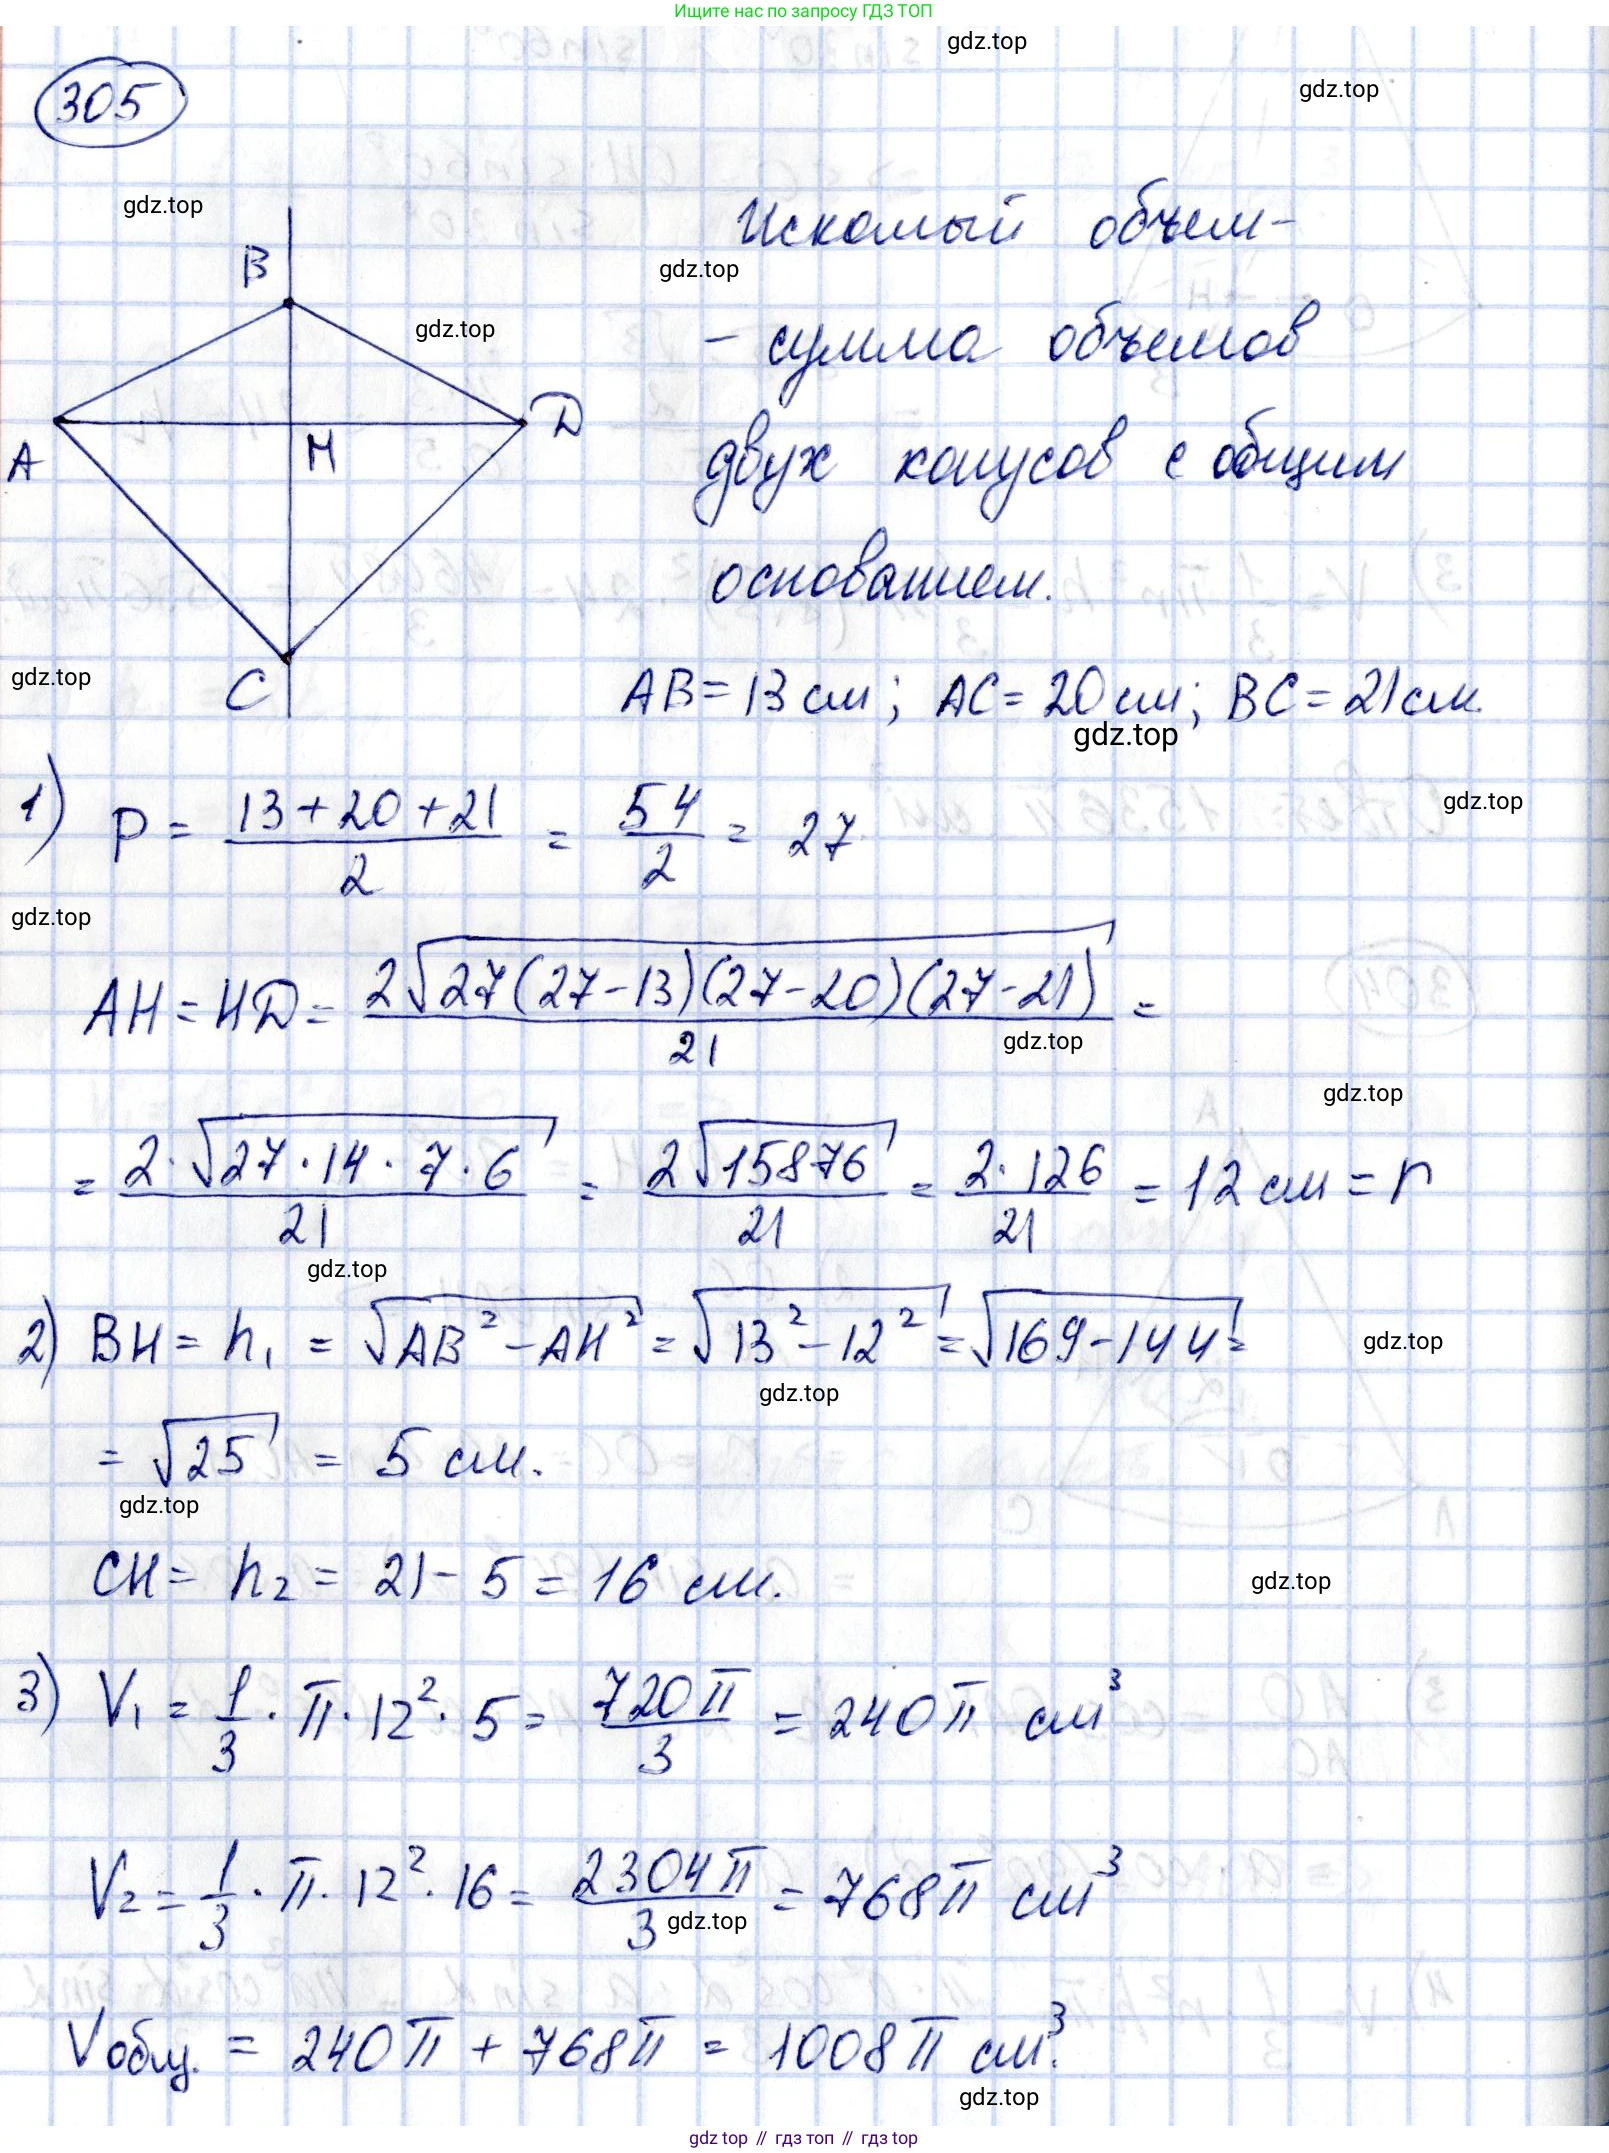 Ищите нас по запросу ГДЗ ТОП
gdz.top
gdz.top
305
gdz.top
Искомый объем-
gdz.top
B
gdz.top
- сумма объемов
D
A
H
двух конусов с общим
основанием.
gdz.top
C
AB = 13 см; AC = 20 см; BC = 21 см.
gdz.top
1) p = (13 + 20 + 21)/2 = 54/2 = 27
gdz.top
gdz.top
AH = HD = 2√(27(27-13)(27-20)(27-21))/21 =
gdz.top
gdz.top
= 2·√(27·14·7·6)/21 = 2√15876/21 = 2·126/21 = 12 см = r
gdz.top
2) BH = h₁ = √(AB² - AH²) = √(13² - 12²) = √(169 - 144) =
gdz.top
gdz.top
= √25 = 5 см.
gdz.top
CH = h₂ = 21 - 5 = 16 см.
gdz.top
3) V₁ = 1/3 · π · 12² · 5 = 720π/3 = 240π см³
V₂ = 1/3 · π · 12² · 16 = 2304π/3 = 768π см³
gdz.top
Vобщ. = 240π + 768π = 1008π см³.
gdz.top
gdz top // гдз топ // гдз top